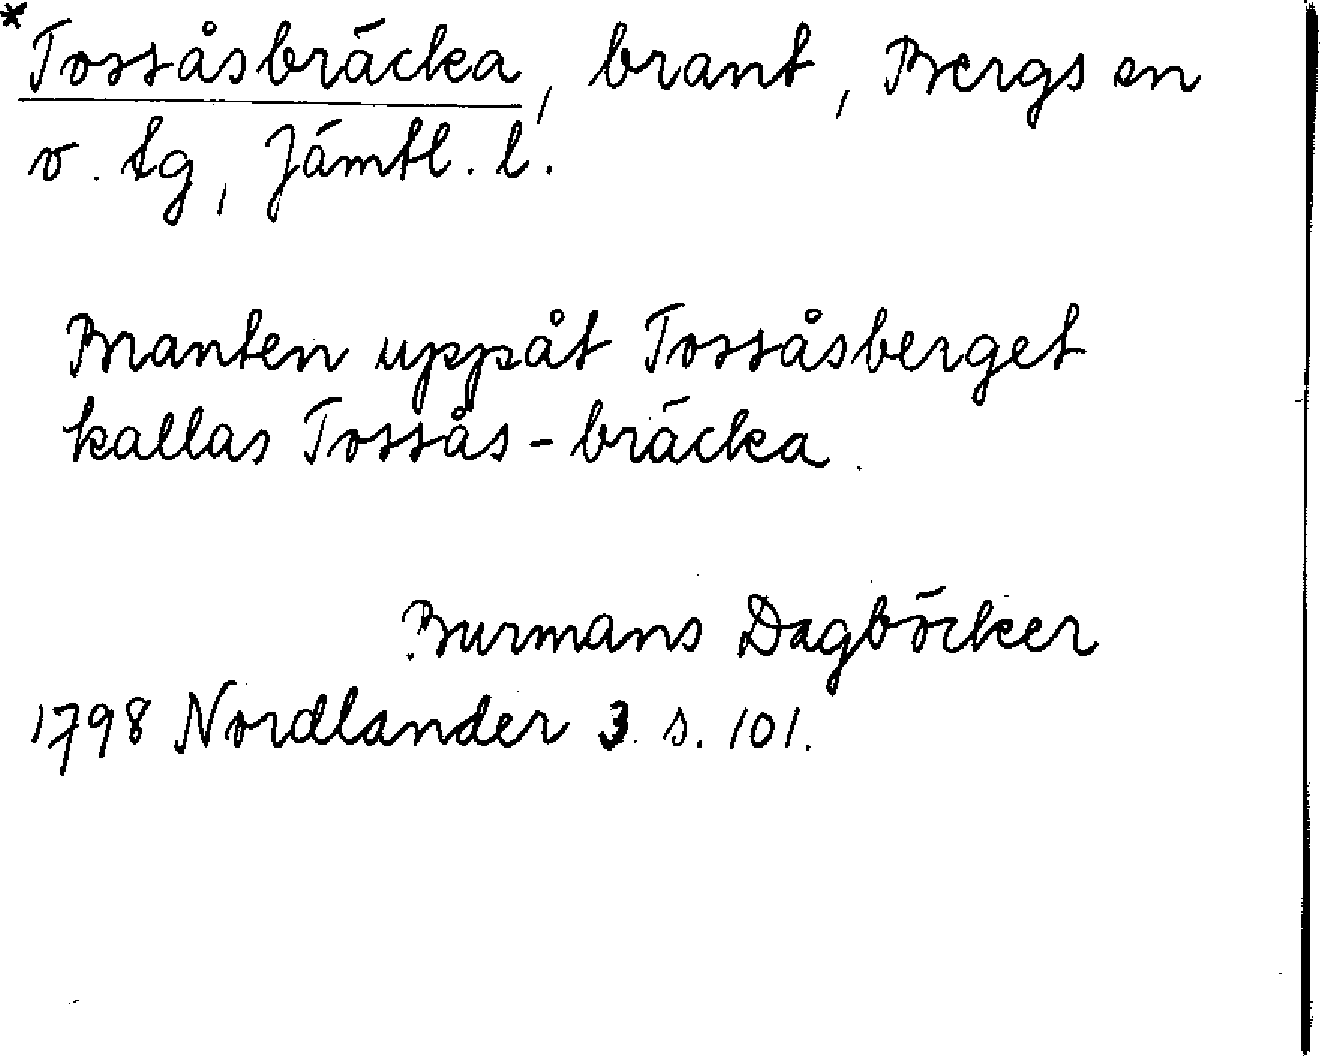 *Tossåsbräcka, brant, Bergs sn
o. tg, Jämtl. l.
Branten uppåt Tossåsberget
kallas Tossås-bräcka.
Burmans Dagböcker
1798 Nordlander 3. s. 101.